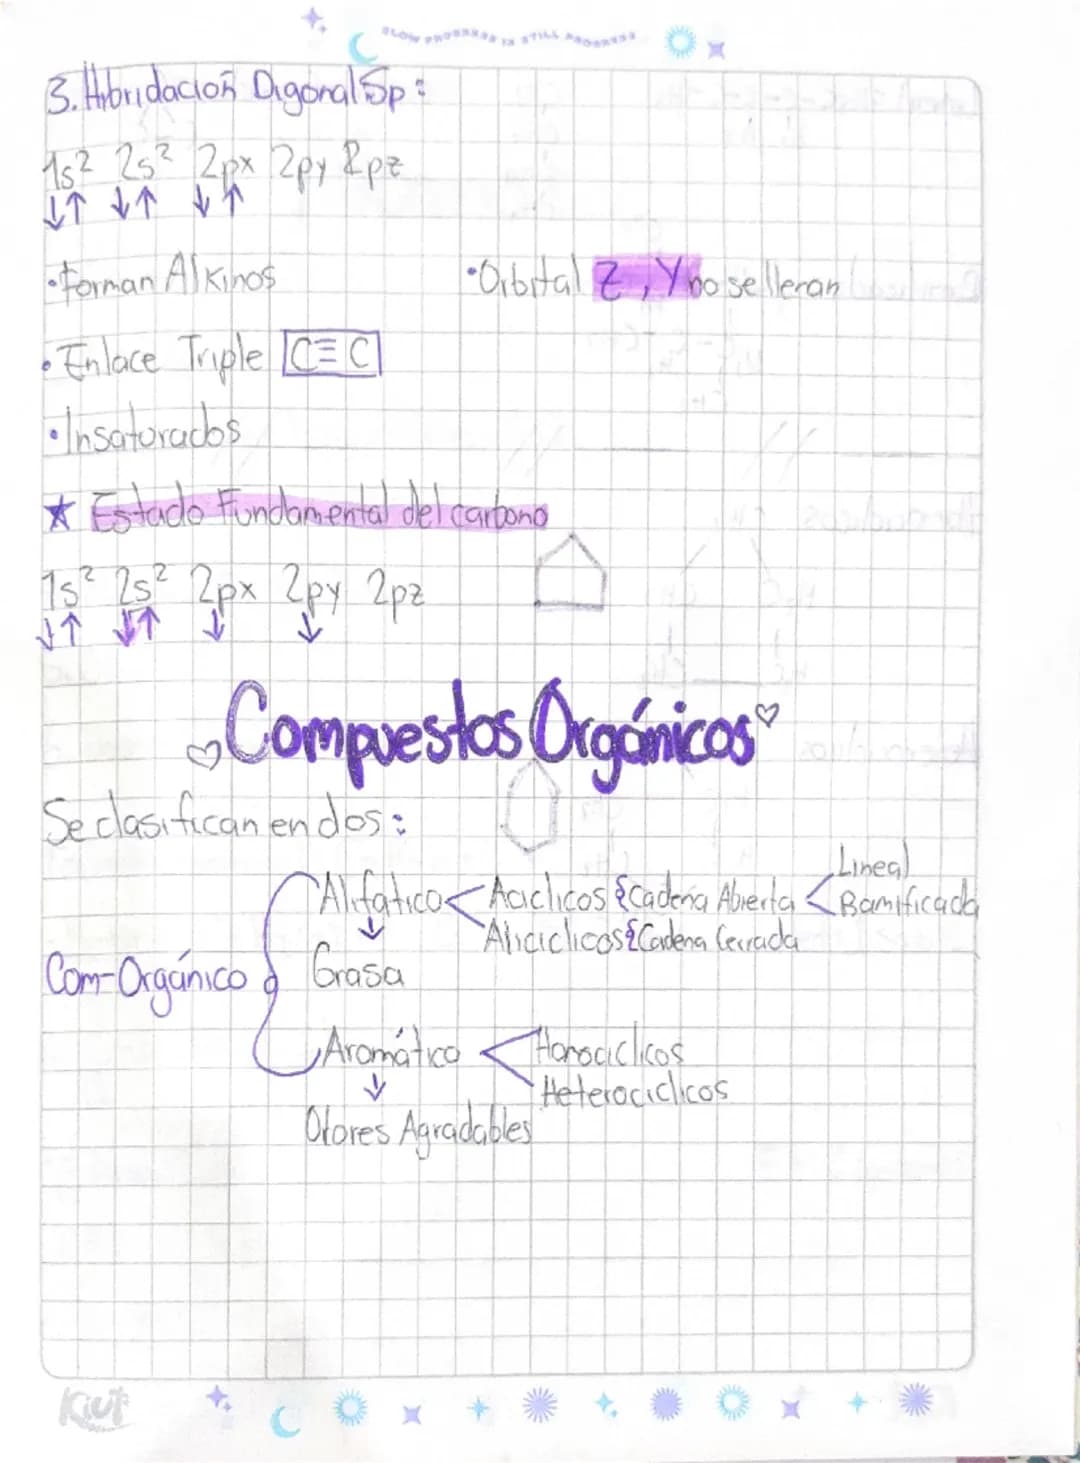 SLOW PROGRESS IS STILL PROGRESS
3. Hibridación Digonal Sp:
1s² 2s² 2px 2py 2pz
↓↑ ↓↑ ↓↑
•Forman Alkinos
•Orbital Z, Y no se lleran
•Enlace Triple C≡C
•Insaturados
★ Estado Fundamental del carbono
1s² 2s² 2px 2py 2pz
↓↑ ↓↑ ↓ ↓
♡Compuestos Orgánicos♡
Se clasifican en dos:
Lineal
Alifático < Aciclicos {Cadena Abierta < Ramificada
↓ Aliciclicos {Cadena Cerrada
Com-Orgánico Grasa
Aromático < Homociclicos
↓ Heterociclicos
Olores Agradables
Kiut